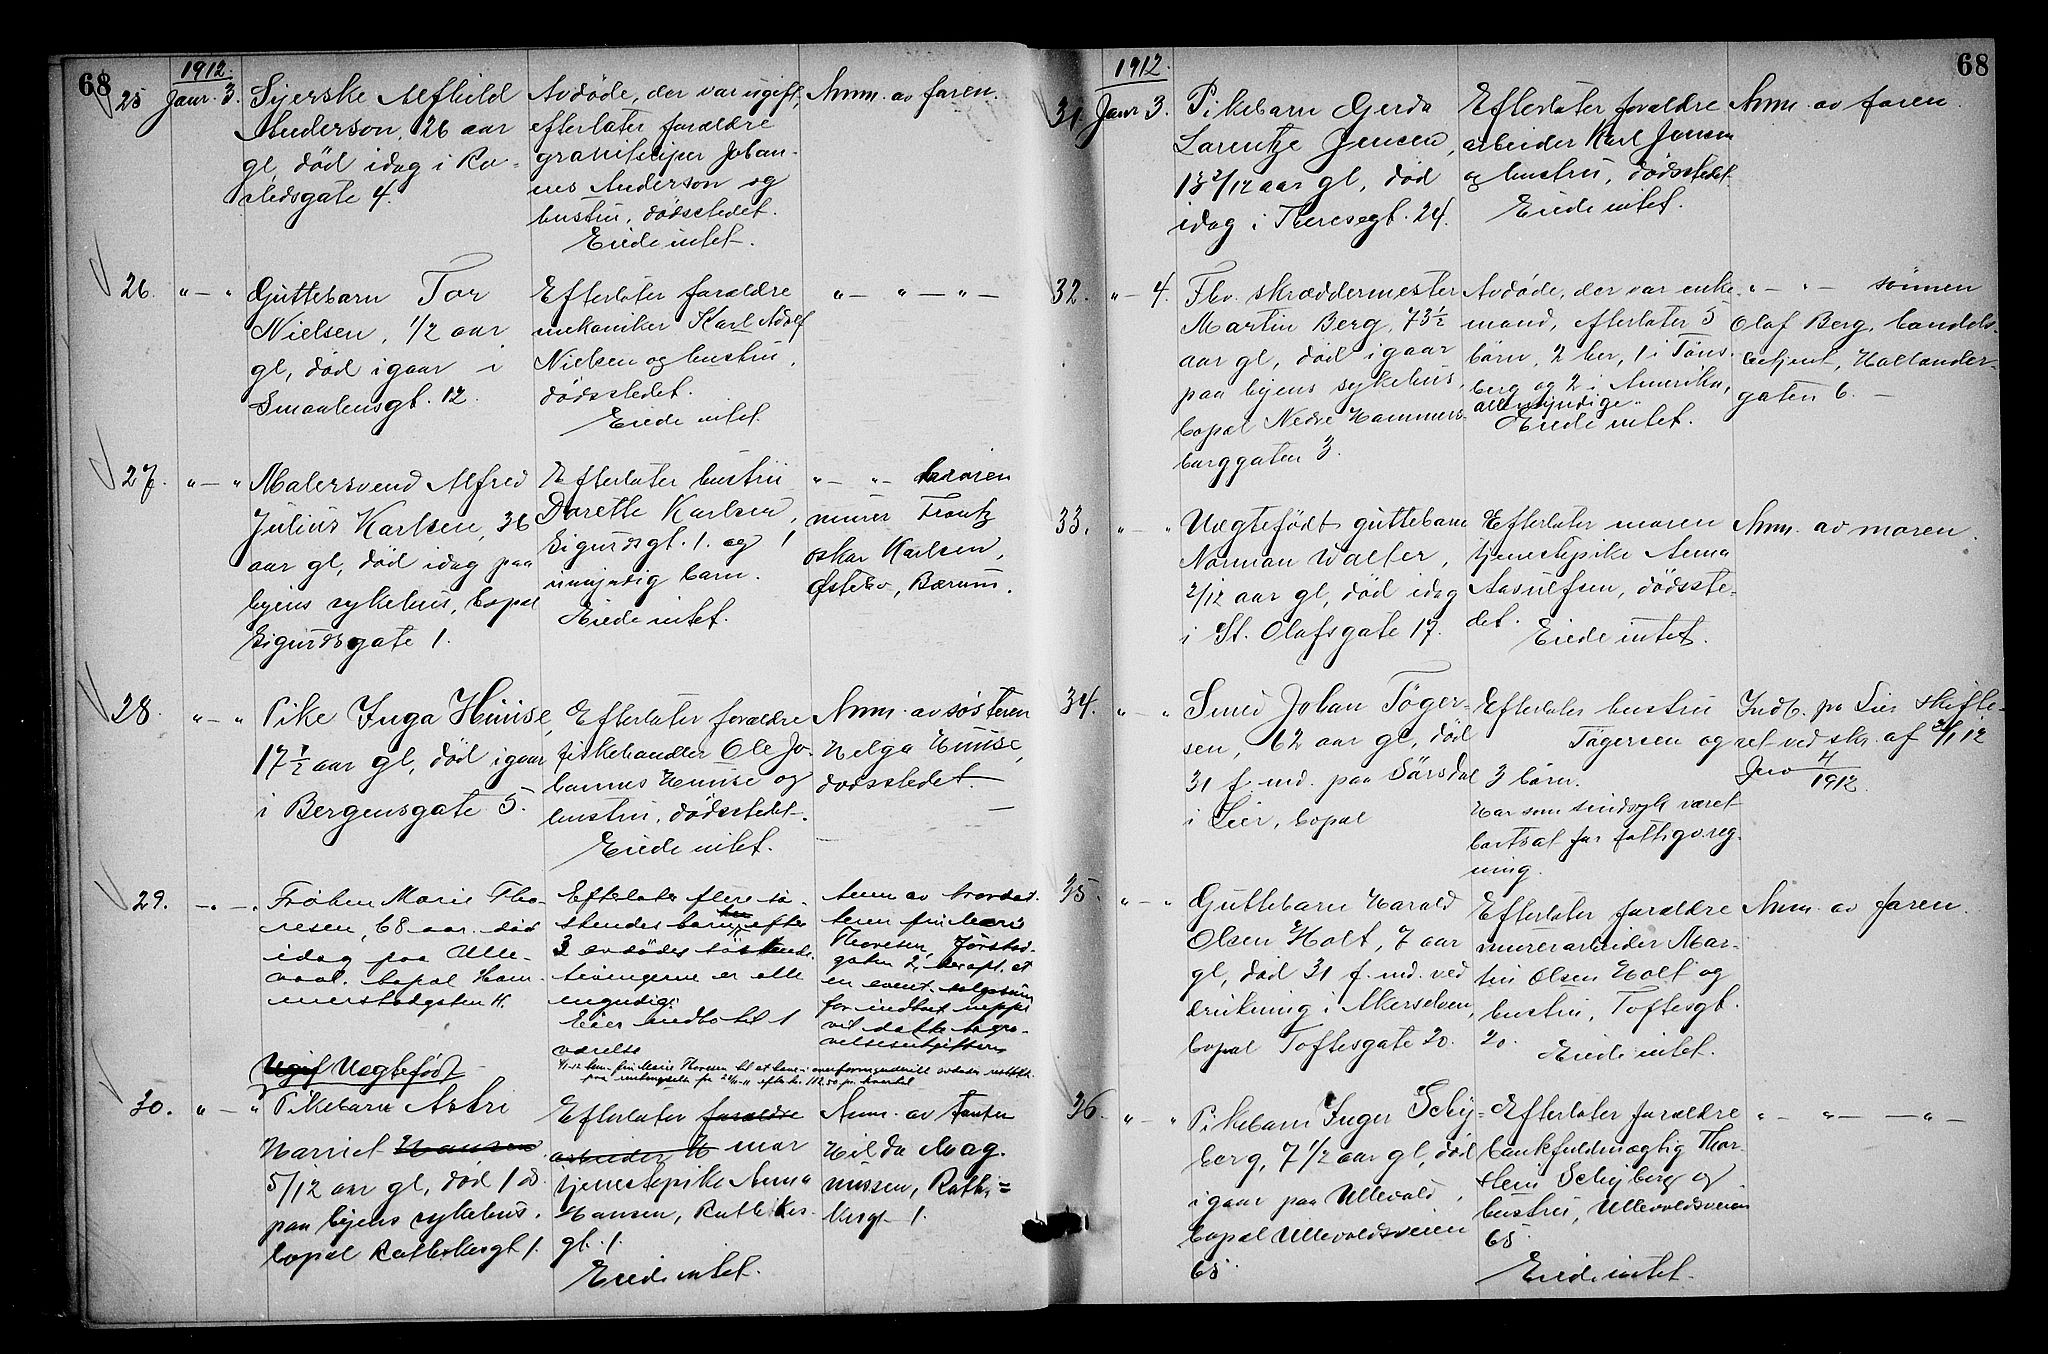 68
1912.
25 Janr. 3. Syerske Alfhild
Anderson, 26 aar
gl, død idag i Ro-
stedsgate 4.
Avdøde, der var ugift,
efterlater forældre
granitsliper Johan-
nes Anderson og
hustru, dødsstedet.
Eiede intet.
Anm. av faren.
26. " — " Guttebarn Tor
Nielsen, 1/2 aar
gl, død igaar i
Smaalensgt. 12.
Efterlater forældre
mekaniker Karl Adolf
Nielsen og hustru,
dødsstedet.
Eiede intet.
" — " — " —
27. " — " Malersvend Alfred
Julius Karlsen, 36
aar gl, død idag paa
byens sykehus, bopæl
Sigurdsgate 1.
Efterlater hustru
Dorette Karlsen,
Sigurdsgt. 1. og 1
umyndig barn.
Eiede intet.
" — " — broren
murer Frantz
Oskar Karlsen,
Østebo, Bærum.
28. " — " Pike Inga Huuse,
17 1/2 aar gl, død igaar
i Bergensgate 5.
Efterlater forældre
fiskehandler Ole Jo-
hannes Huuse og
hustru, dødsstedet.
Eiede intet.
Anm. av søsteren
Helga Huuse,
dødsstedet.
29. — " — " Frøken Marie Tho-
resen, 68 aar, død
idag paa Ulle-
vaal. bopæl Ham-
merstadgaten 11.
Efterlater flere sø-
skendes barn, efter
3 av dødes søskende.
Arvingerne er alle
myndige
Eier indbo til 1
værelse
Anm. av brordat-
teren frk Marie
Thoresen, Jørstad-
gaten 2, der opl. at
en event. salgssum
for indboet neppe
vil dække begra-
velsesutgifterne
Ugif Uægtefødt
30. " — " Pikebarn Astri
Harriet Hansen
5/12 aar gl, død 1 ds
paa byens sykehus.
bopæl Rathkesgt 1.
Efterlater forældre
arbeider H mor
tjenestepike Anna
Hansen, Rathkes-
gt. 1.
Eiede intet.
Anm. av tanten
Hilda Mag-
nussen, Rath-
kesgt 1.
68
1912.
31. Janr 3. Pikebarn Gerda
Larentze Jensen,
1 2/12 aar gl, død
idag i Theresegt. 24.
Efterlater forældre
arbeider Karl Jensen
og hustru, dødsstedet.
Eiede intet.
Anm. av faren.
32. " — 4. Fhv. skræddermester
Martin Berg, 73 1/2
aar gl, død igaar
paa byens sykehus,
bopæl Nedre Hammers-
borggaten 3.
Avdøde, der var enke-
mand, efterlater 5
børn, 2 her, 1 i Tøns-
berg og 2 i Amerika,
alle myndige.
Eiede intet.
" — " — sønnen
Olaf Berg, handels-
betjent, Hollander-
gaten 6. —
33. " — " Uægtefødt guttebarn
Norman Walter,
2/12 aar gl, død idag
i St. Olafsgate 17.
Efterlater moren
tjenestepike Anna
Aasulfsen, dødsste-
det.
Eiede intet.
Anm. av moren.
34. " — " Smed Johan Tøger-
sen, 62 aar gl, død
31 f. md. paa Sørsdal
i Lier, bopæl
Efterlater hustru
Tøgersen og
3 børn.
Har som sindssyk været
bortsat for fattigv. reg-
ning.
Indb. pr Lier skifte-
ret ved skr. af 2/1 12
Jno 4/1912.
35. " — " Guttebarn Harald
Olsen Holt, 7 aar
gl, død 31 f. md. ved
drukning i Akerselven,
bopæl Toftesgate 20.
Efterlater forældre
murerarbeider Mar-
tin Olsen Holt og
hustru, Toftesgt.
20.
Eiede intet.
Anm. av faren.
36. " — " Pikebarn Inger Schy-
berg, 7 1/2 aar gl, død
igaar paa Ullevold,
bopæl Ullevoldsveien
65.
Efterlater forældre
bankfuldmægtig Thor-
stein Schyberg og
hustru, Ullevoldsveien
65.
Eiede intet.
" — " — " —